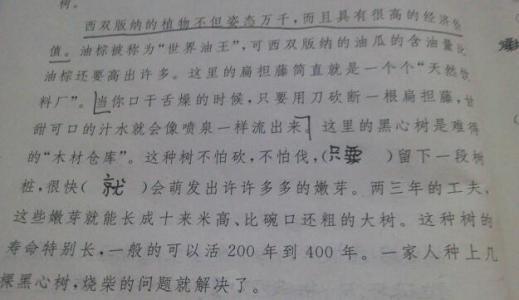 树。
西双版纳的植物不但姿态万千,而且具有很高的经济价
值。油棕被称为“世界油王”,可西双版纳的油瓜的含油量比
油棕还要高出许多。这里的扁担藤简直就是一个个“天然饮
料厂”。当你口干舌燥的时候,只要用刀砍断一根扁担藤,甘
甜可口的汁水就会像喷泉一样流出来。这里的黑心树是难得
的“木材仓库”。这种树不怕砍,不怕伐,(只要)留下一段树
桩,很快(就)会萌发出许许多多的嫩芽。两三年的工夫,
这些嫩芽就能长成十来米高、比碗口还粗的大树。这种树的
寿命特别长,一般的可以活200年到400年。一家人种上几
棵黑心树,烧柴的问题就解决了。